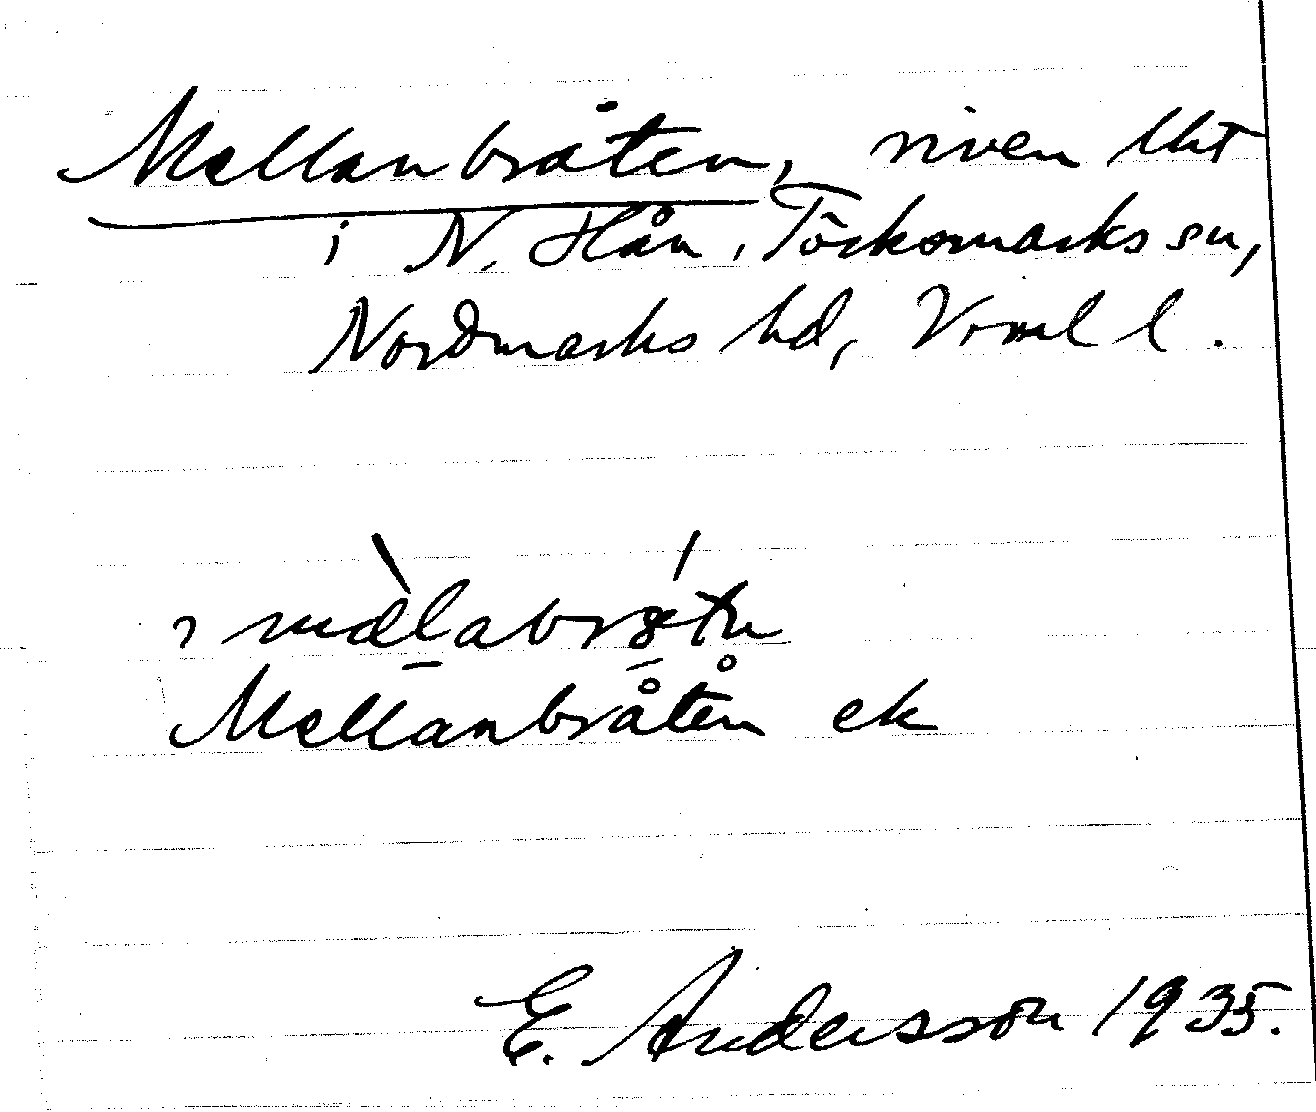 Mellanbråten, riven lht
i N. Hån, Töcksmarks sn,
Nordmarks hd, Vrml l.
Mellanbråten ek
E. Andersson 1935.